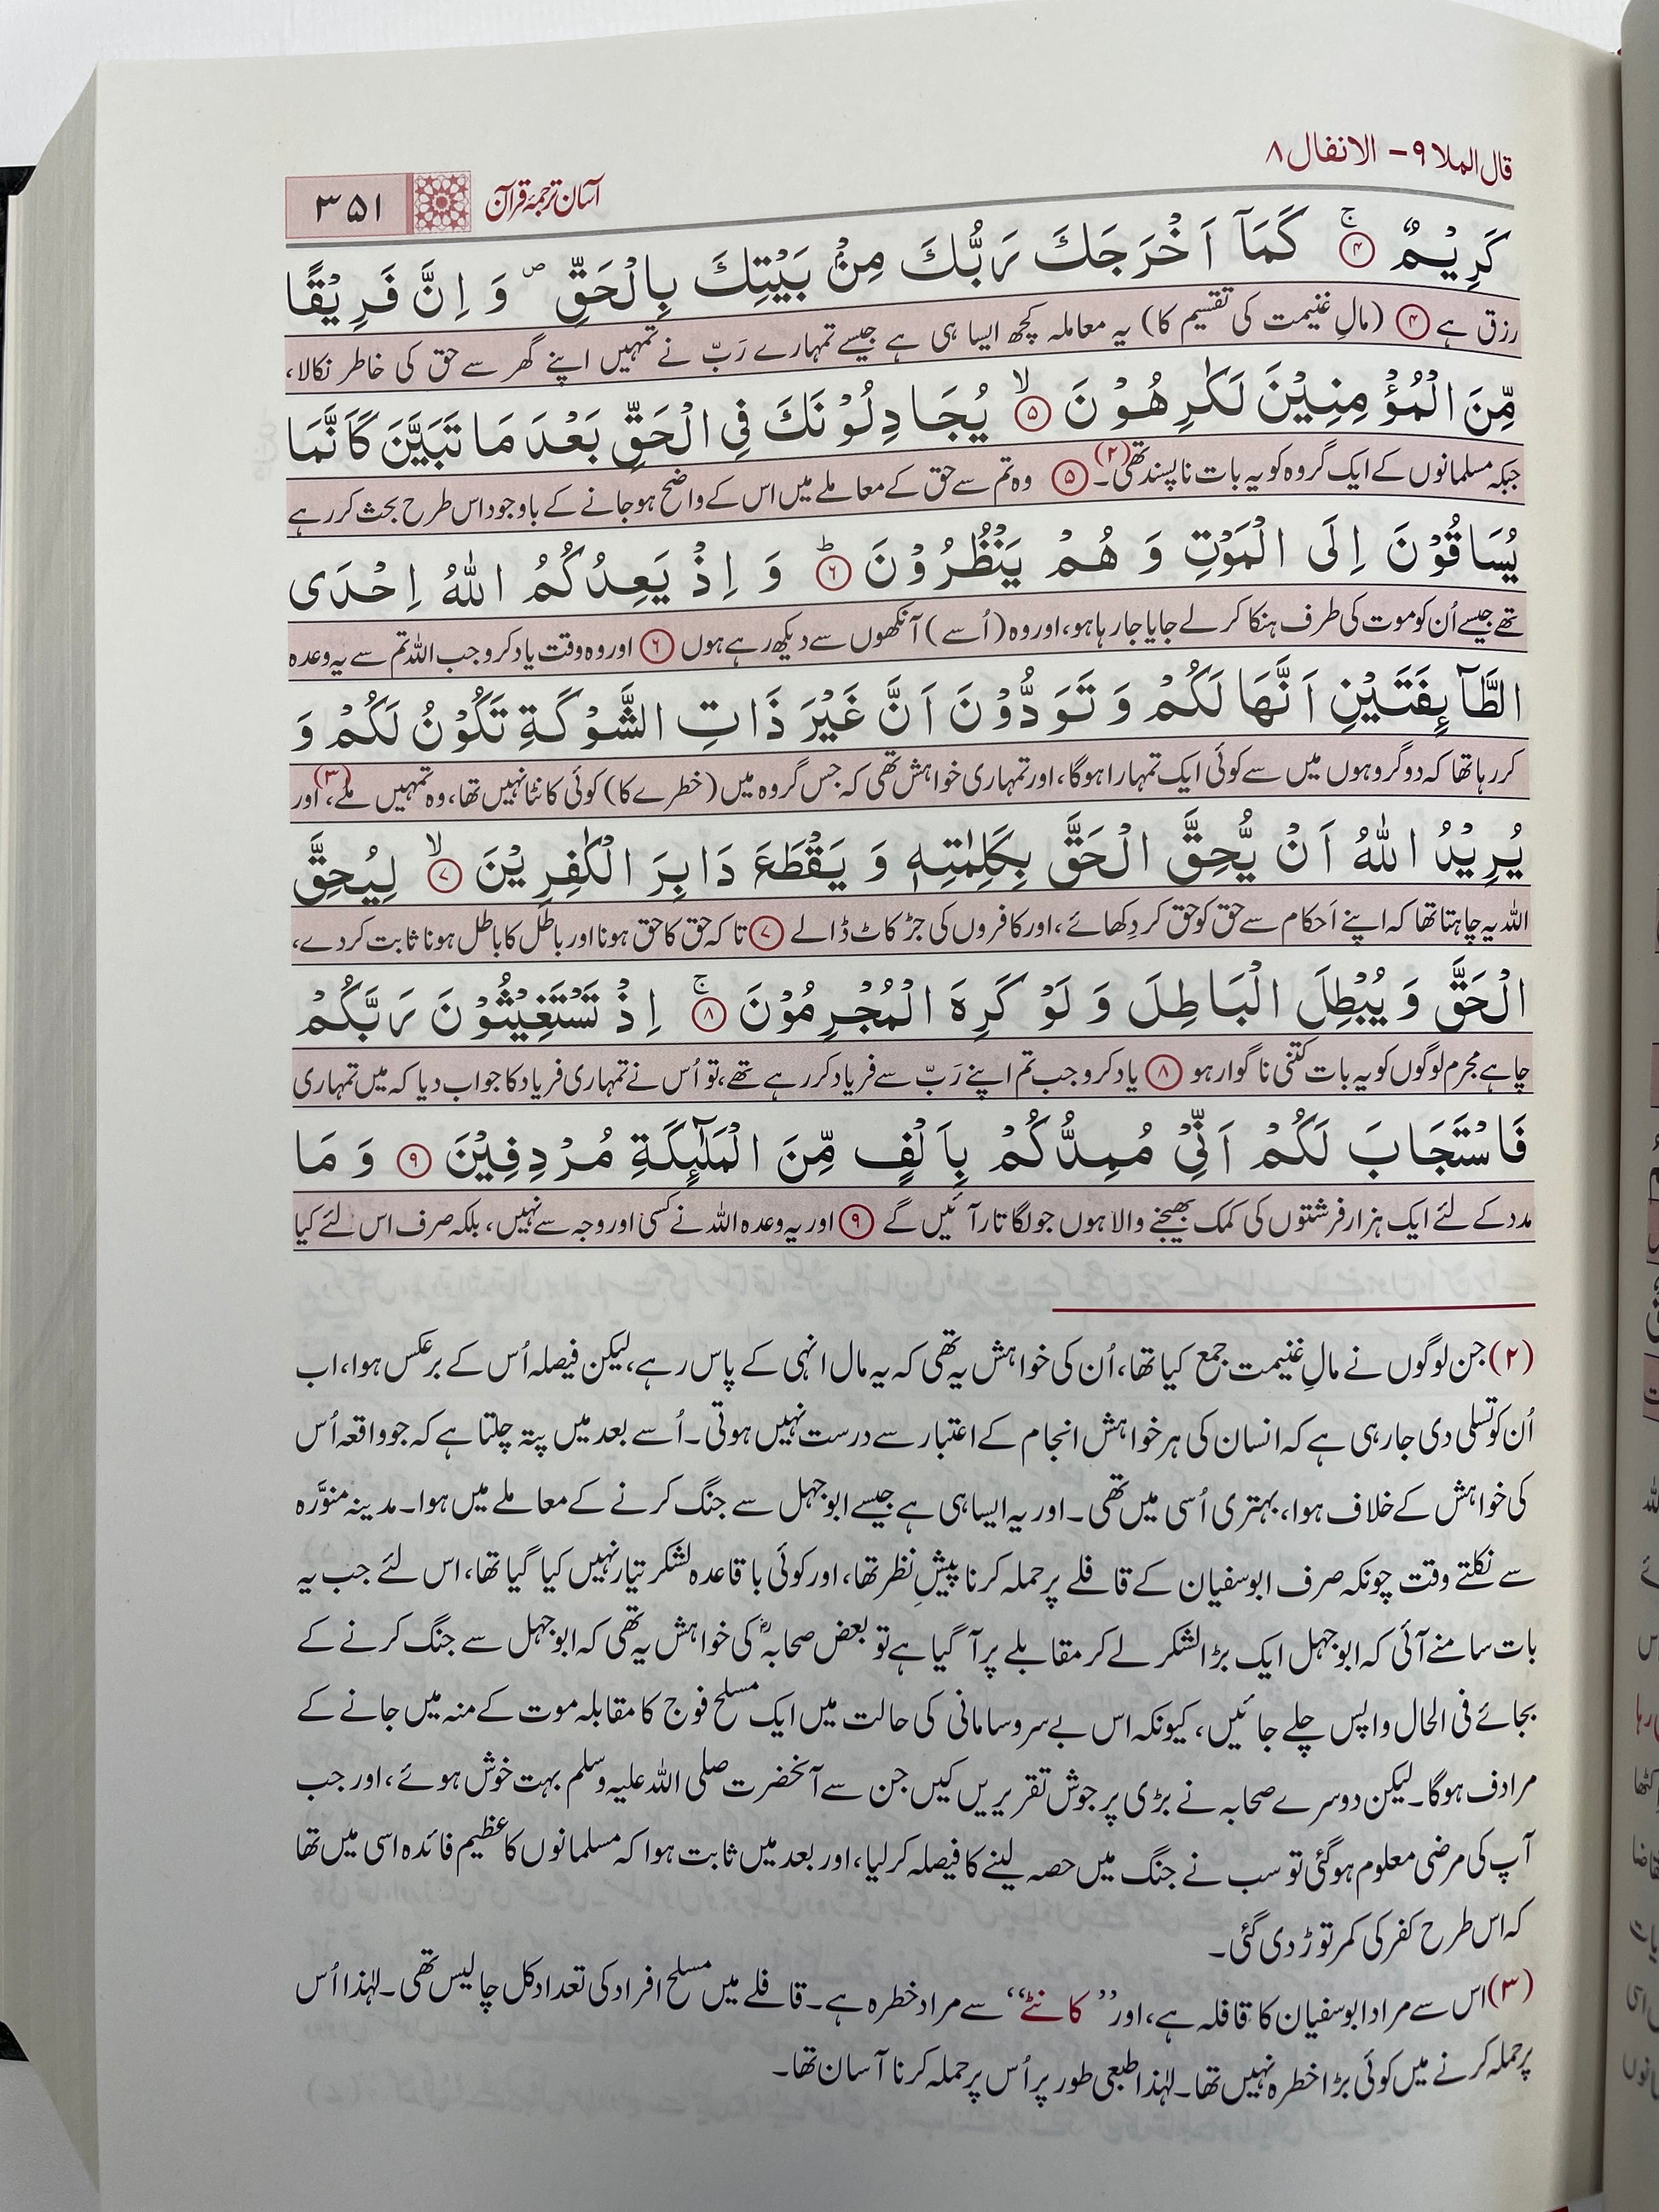 قال الملا ٩ – الانفال ٨
آسان ترجمۂ قرآن
۳۵۱
كَرِيْمٌ ۚ﴿۴﴾ كَمَاۤ اَخْرَجَكَ رَبُّكَ مِنْۢ بَيْتِكَ بِالْحَقِّ ۪ وَ اِنَّ فَرِيْقًا
رزق ہے ﴿۴﴾ (مالِ غنیمت کی تقسیم کا) یہ معاملہ کچھ ایسا ہی ہے جیسے تمہارے رَبّ نے تمہیں اپنے گھر سے حق کی خاطر نکالا،
مِّنَ الْمُؤْمِنِيْنَ لَكٰرِهُوْنَ ۙ﴿۵﴾ يُجَادِلُوْنَكَ فِي الْحَقِّ بَعْدَ مَا تَبَيَّنَ كَاَنَّمَا
جبکہ مسلمانوں کے ایک گروہ کو یہ بات ناپسند تھی۔(۲) ﴿۵﴾ وہ تم سے حق کے معاملے میں اس کے واضح ہوجانے کے باوجود اس طرح بحث کررہے
يُسَاقُوْنَ اِلَى الْمَوْتِ وَ هُمْ يَنْظُرُوْنَ ؕ﴿۶﴾ وَ اِذْ يَعِدُكُمُ اللّٰهُ اِحْدَى
تھے جیسے اُن کو موت کی طرف ہنکا کر لے جایا جارہا ہو، اور وہ (اُسے) آنکھوں سے دیکھ رہے ہوں ﴿۶﴾ اور وہ وقت یاد کرو جب اللہ تم سے یہ وعدہ
الطَّآىِٕفَتَيْنِ اَنَّهَا لَكُمْ وَ تَوَدُّوْنَ اَنَّ غَيْرَ ذَاتِ الشَّوْكَةِ تَكُوْنُ لَكُمْ وَ
کررہا تھا کہ دو گروہوں میں سے کوئی ایک تمہارا ہوگا، اور تمہاری خواہش تھی کہ جس گروہ میں (خطرے کا) کوئی کانٹا نہیں تھا، وہ تمہیں ملے،(۳) اور
يُرِيْدُ اللّٰهُ اَنْ يُّحِقَّ الْحَقَّ بِكَلِمٰتِهٖ وَ يَقْطَعَ دَابِرَ الْكٰفِرِيْنَ ۙ﴿۷﴾ لِيُحِقَّ
اللہ یہ چاہتا تھا کہ اپنے اَحکام سے حق کو حق کر دِکھائے، اور کافروں کی جڑ کاٹ ڈالے ﴿۷﴾ تاکہ حق کا حق ہونا اور باطل کا باطل ہونا ثابت کردے،
الْحَقَّ وَ يُبْطِلَ الْبَاطِلَ وَ لَوْ كَرِهَ الْمُجْرِمُوْنَ ۚ﴿۸﴾ اِذْ تَسْتَغِيْثُوْنَ رَبَّكُمْ
چاہے مجرم لوگوں کو یہ بات کتنی ناگوار ہو ﴿۸﴾ یاد کرو جب تم اپنے رَبّ سے فریاد کررہے تھے، تو اُس نے تمہاری فریاد کا جواب دیا کہ میں تمہاری
فَاسْتَجَابَ لَكُمْ اَنِّيْ مُمِدُّكُمْ بِاَلْفٍ مِّنَ الْمَلٰٓىِٕكَةِ مُرْدِفِيْنَ ﴿۹﴾ وَ مَا
مدد کے لئے ایک ہزار فرشتوں کی کمک بھیجنے والا ہوں جو لگاتار آئیں گے ﴿۹﴾ اور یہ وعدہ اللہ نے کسی اور وجہ سے نہیں، بلکہ صرف اس لئے کیا
(۲) جن لوگوں نے مالِ غنیمت جمع کیا تھا، اُن کی خواہش یہ تھی کہ یہ مال انہی کے پاس رہے، لیکن فیصلہ اُس کے برعکس ہوا، اب
اُن کو تسلی دی جارہی ہے کہ انسان کی ہر خواہش انجام کے اعتبار سے درست نہیں ہوتی۔ اُسے بعد میں پتہ چلتا ہے کہ جو واقعہ اُس
کی خواہش کے خلاف ہوا، بہتری اُسی میں تھی۔ اور یہ ایسا ہی ہے جیسے ابوجہل سے جنگ کرنے کے معاملے میں ہوا۔ مدینہ منوَّرہ
سے نکلتے وقت چونکہ صرف ابوسفیان کے قافلے پر حملہ کرنا پیشِ نظر تھا، اور کوئی باقاعدہ لشکر تیار نہیں کیا گیا تھا، اس لئے جب یہ
بات سامنے آئی کہ ابوجہل ایک بڑا لشکر لے کر مقابلے پر آگیا ہے تو بعض صحابہؓ کی خواہش یہ تھی کہ ابوجہل سے جنگ کرنے کے
بجائے فی الحال واپس چلے جائیں، کیونکہ اس بے سروسامانی کی حالت میں ایک مسلح فوج کا مقابلہ موت کے منہ میں جانے کے
مرادف ہوگا۔ لیکن دوسرے صحابہ نے بڑی پرجوش تقریریں کیں جن سے آنحضرت صلی اللہ علیہ وسلم بہت خوش ہوئے، اور جب
آپ کی مرضی معلوم ہوگئی تو سب نے جنگ میں حصہ لینے کا فیصلہ کرلیا، اور بعد میں ثابت ہوا کہ مسلمانوں کا عظیم فائدہ اسی میں تھا
کہ اس طرح کفر کی کمر توڑ دی گئی۔
(۳) اس سے مراد ابوسفیان کا قافلہ ہے، اور ’’کانٹے‘‘ سے مراد خطرہ ہے۔ قافلے میں مسلح افراد کی تعداد کل چالیس تھی۔ لہٰذا اُس
پر حملہ کرنے میں کوئی بڑا خطرہ نہیں تھا۔ لہٰذا طبعی طور پر اُس پر حملہ کرنا آسان تھا۔